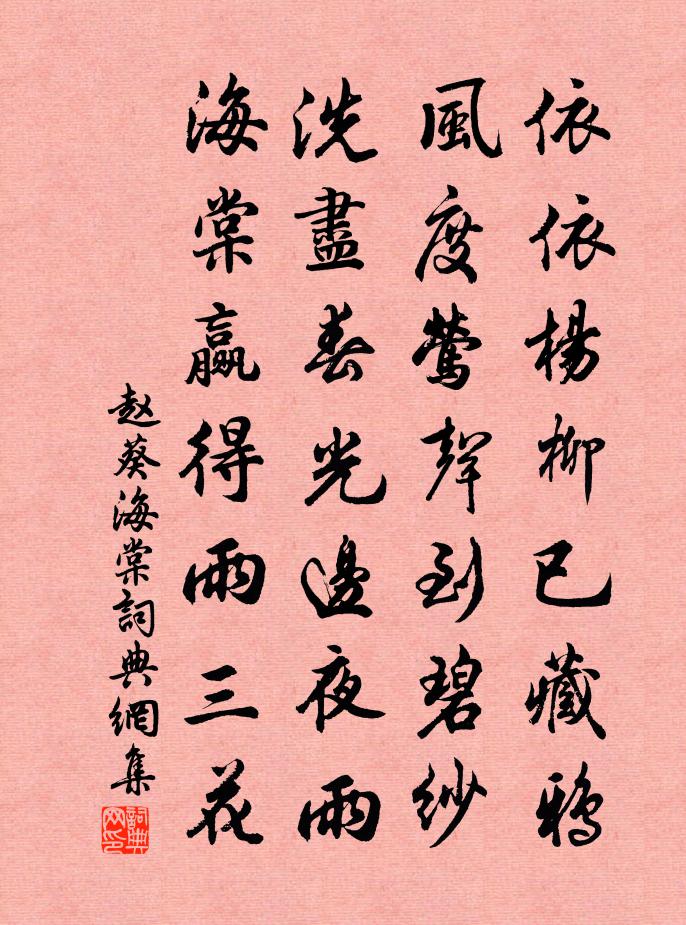 依依楊柳已藏鴉
風度鶯聲到碧紗
洗盡春光邊夜雨
海棠贏得雨三花
赵葵海棠詞典網集
詞典网印